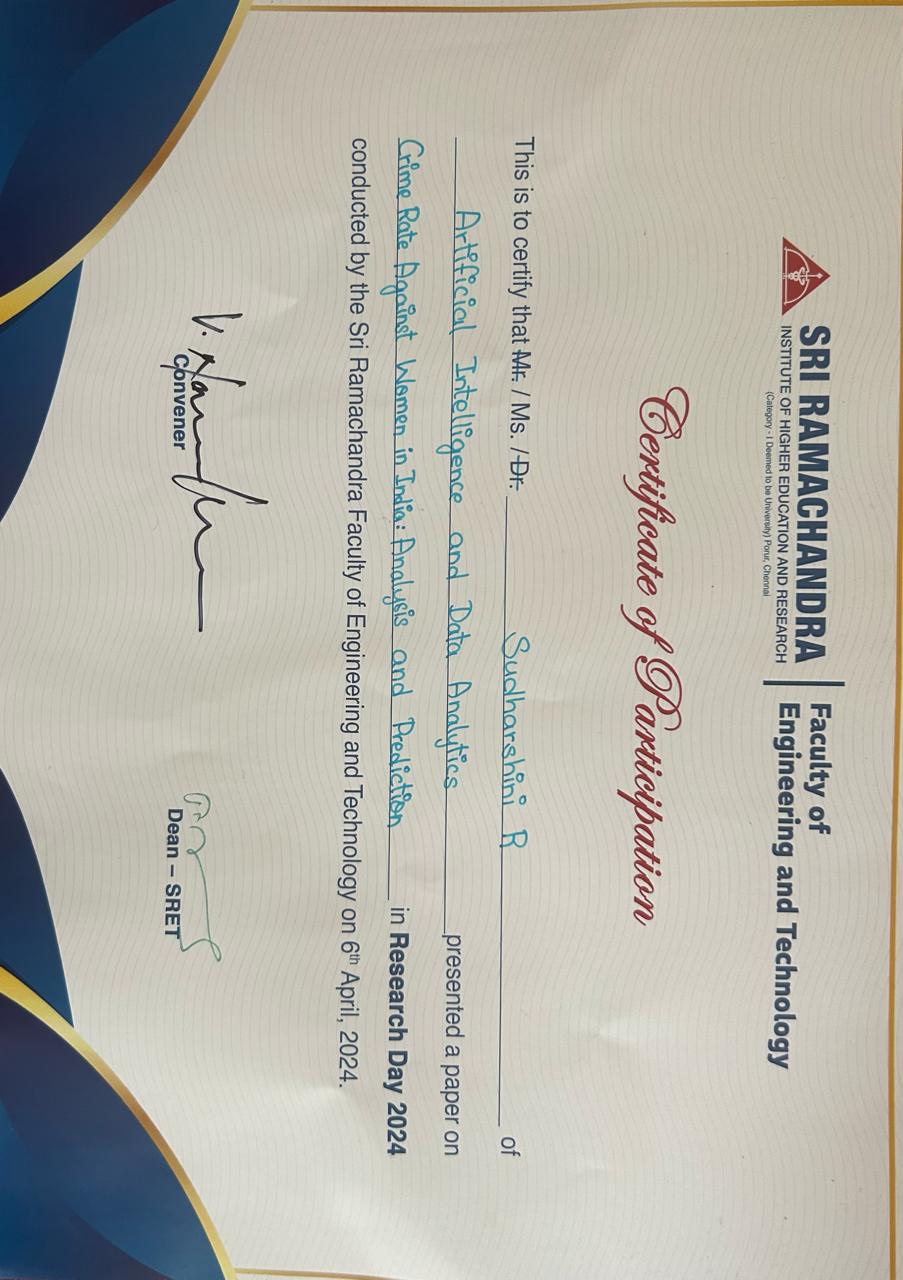 SRI RAMACHANDRA
INSTITUTE OF HIGHER EDUCATION AND RESEARCH
(Category - I Deemed to be University) Porur, Chennai
Faculty of
Engineering and Technology
Certificate of Participation
This is to certify that Mr. / Ms. / Dr. Sudharshini R of
Artificial Intelligence and Data Analytics presented a paper on
Crime Rate Against Women in India: Analysis and Prediction in Research Day 2024
conducted by the Sri Ramachandra Faculty of Engineering and Technology on 6th April, 2024.
Convener
Dean – SRET